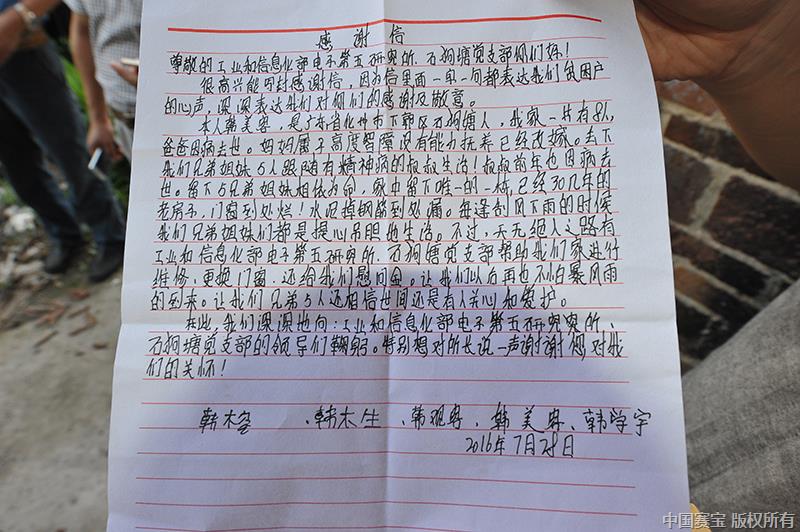 感谢信
尊敬的工业和信息化部电子第五研究所、石狗塘党支部领们好!
很高兴能写封感谢信,因为信里面一字一句都表达我们贫困户
的心声,深深表达我们对领们的感谢及敬意。
本人韩美容,是广东省化州市下郭区石狗塘人,我家一共有8人,
爸爸因病去世。妈妈属于高度智障没有能力抚养已经改嫁。丢下
我们兄弟姐妹5人跟随有精神病的叔叔生活!叔叔前年也因病去
世。留下5兄弟姐妹相依为命,家中留下唯一的一栋,已经30几年的
老房子,门窗到处烂!水泥掉钢筋到处漏。每逢刮风下雨的时候
我们兄弟姐妹们都是提心吊胆地生活。不过,天无绝人之路有
工业和信息化部电子第五研究所、石狗塘党支部帮助我们家进行
维修,更换门窗,还给我们慰问金。让我们以后再也不怕暴风雨
的到来。让我们兄弟5人还相信世间还是有人关心和爱护。
在此,我们深深地向:工业和信息化部电子第五研究所、
石狗塘党支部的领导们鞠躬。特别想对所长说一声谢谢您,对我
们的关怀!
韩木 、韩木生、韩观 、韩美 、韩学宇
2016年7月28日
中国赛宝 版权所有